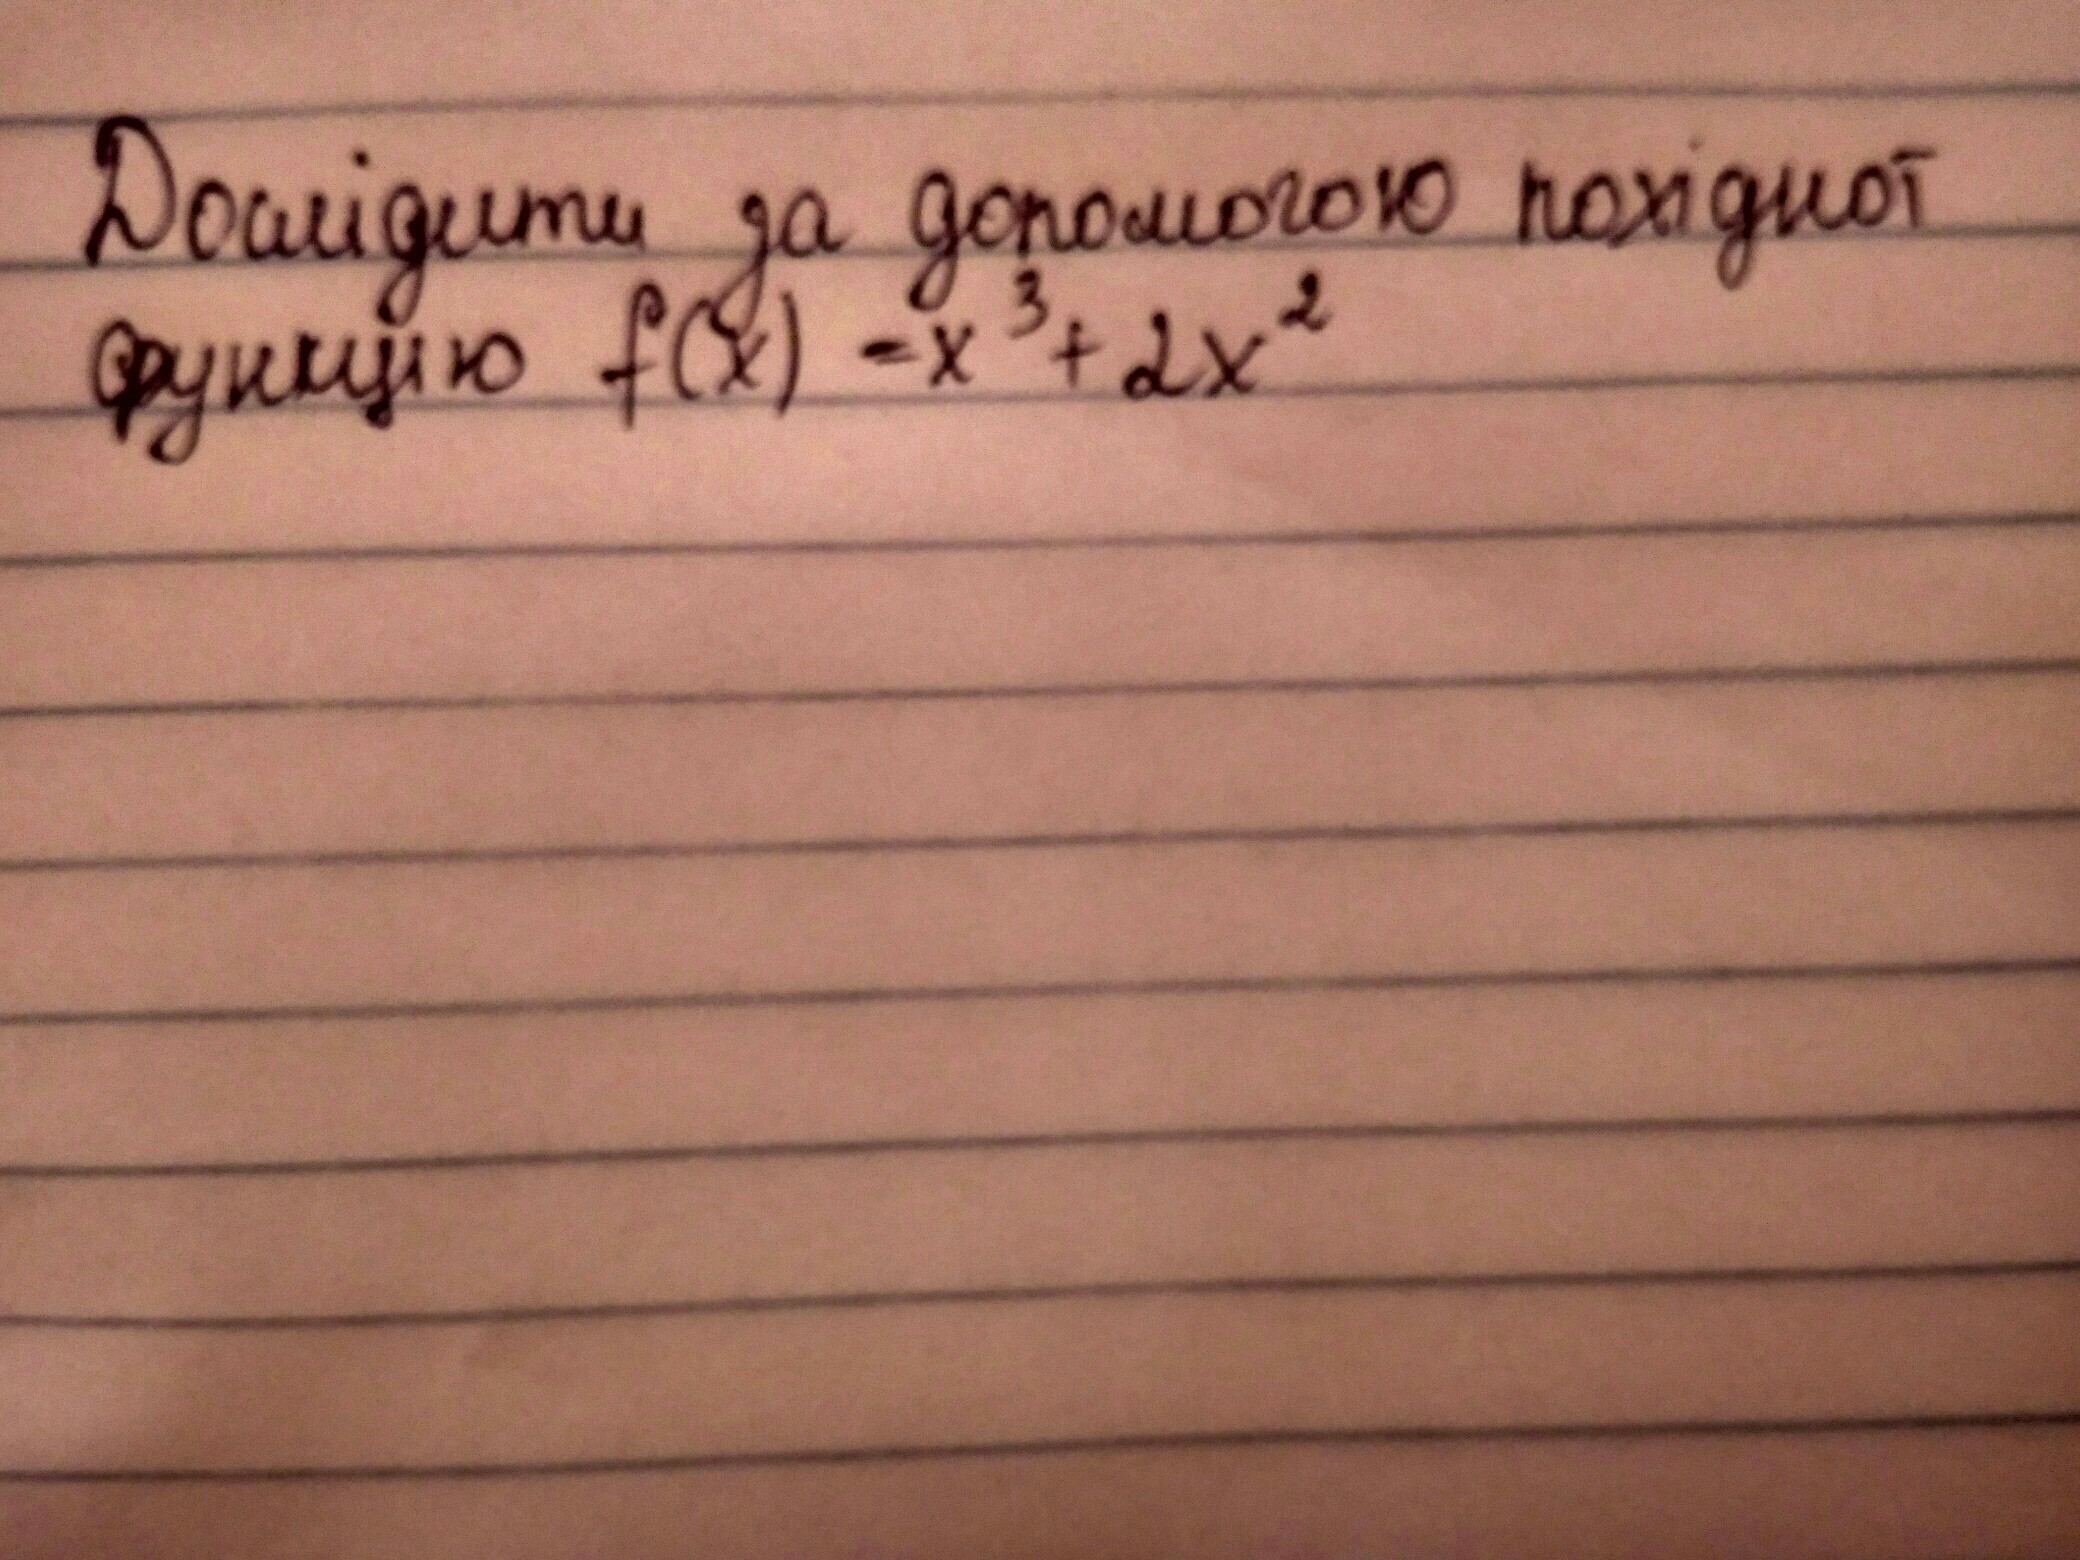 Дослідити за допомогою похідної
функцію f(x) = x³ + 2x²